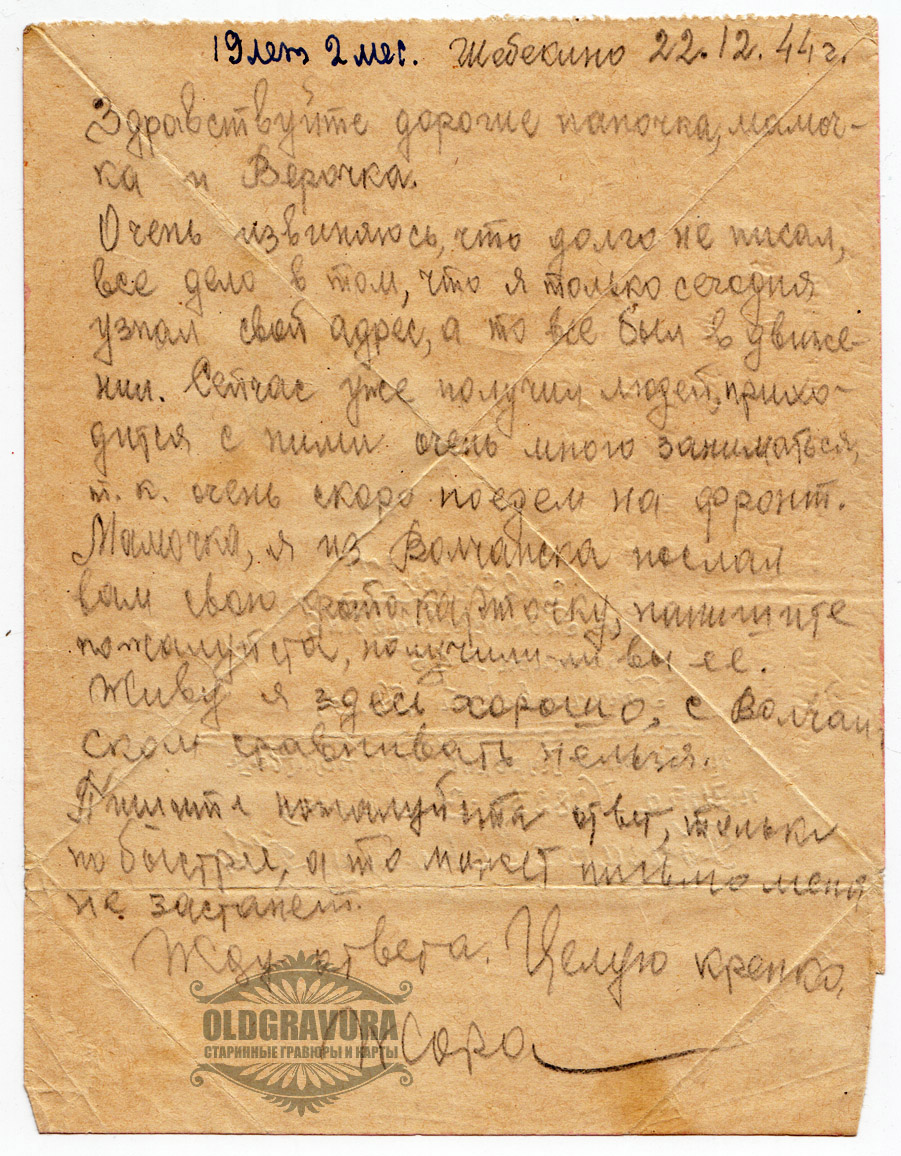 19 лет 2 мес. Шебекино 22.12.44 г.
Здравствуйте дорогие папочка, мамоч-
ка и Верочка.
Очень извиняюсь, что долго не писал,
все дело в том, что я только сегодня
узнал свой адрес, а то все был в движе-
нии. Сейчас уже получил людей, прихо-
дится с ними очень много заниматься,
т. к. очень скоро поедем на фронт.
Мамочка, я из Волчанска послал
вам свою фотокарточку, напишите
пожалуйста, получили-ли вы ее.
Живу я здесь хорошо, с Волчан-
ском сравнивать нельзя.
Пишите пожалуйста ответ, только
по быстрее, а то может письмо меня
не застанет.
Жду ответа. Целую крепко,
Жора
OLDGRAVURA
СТАРИННЫЕ ГРАВЮРЫ И КАРТЫ